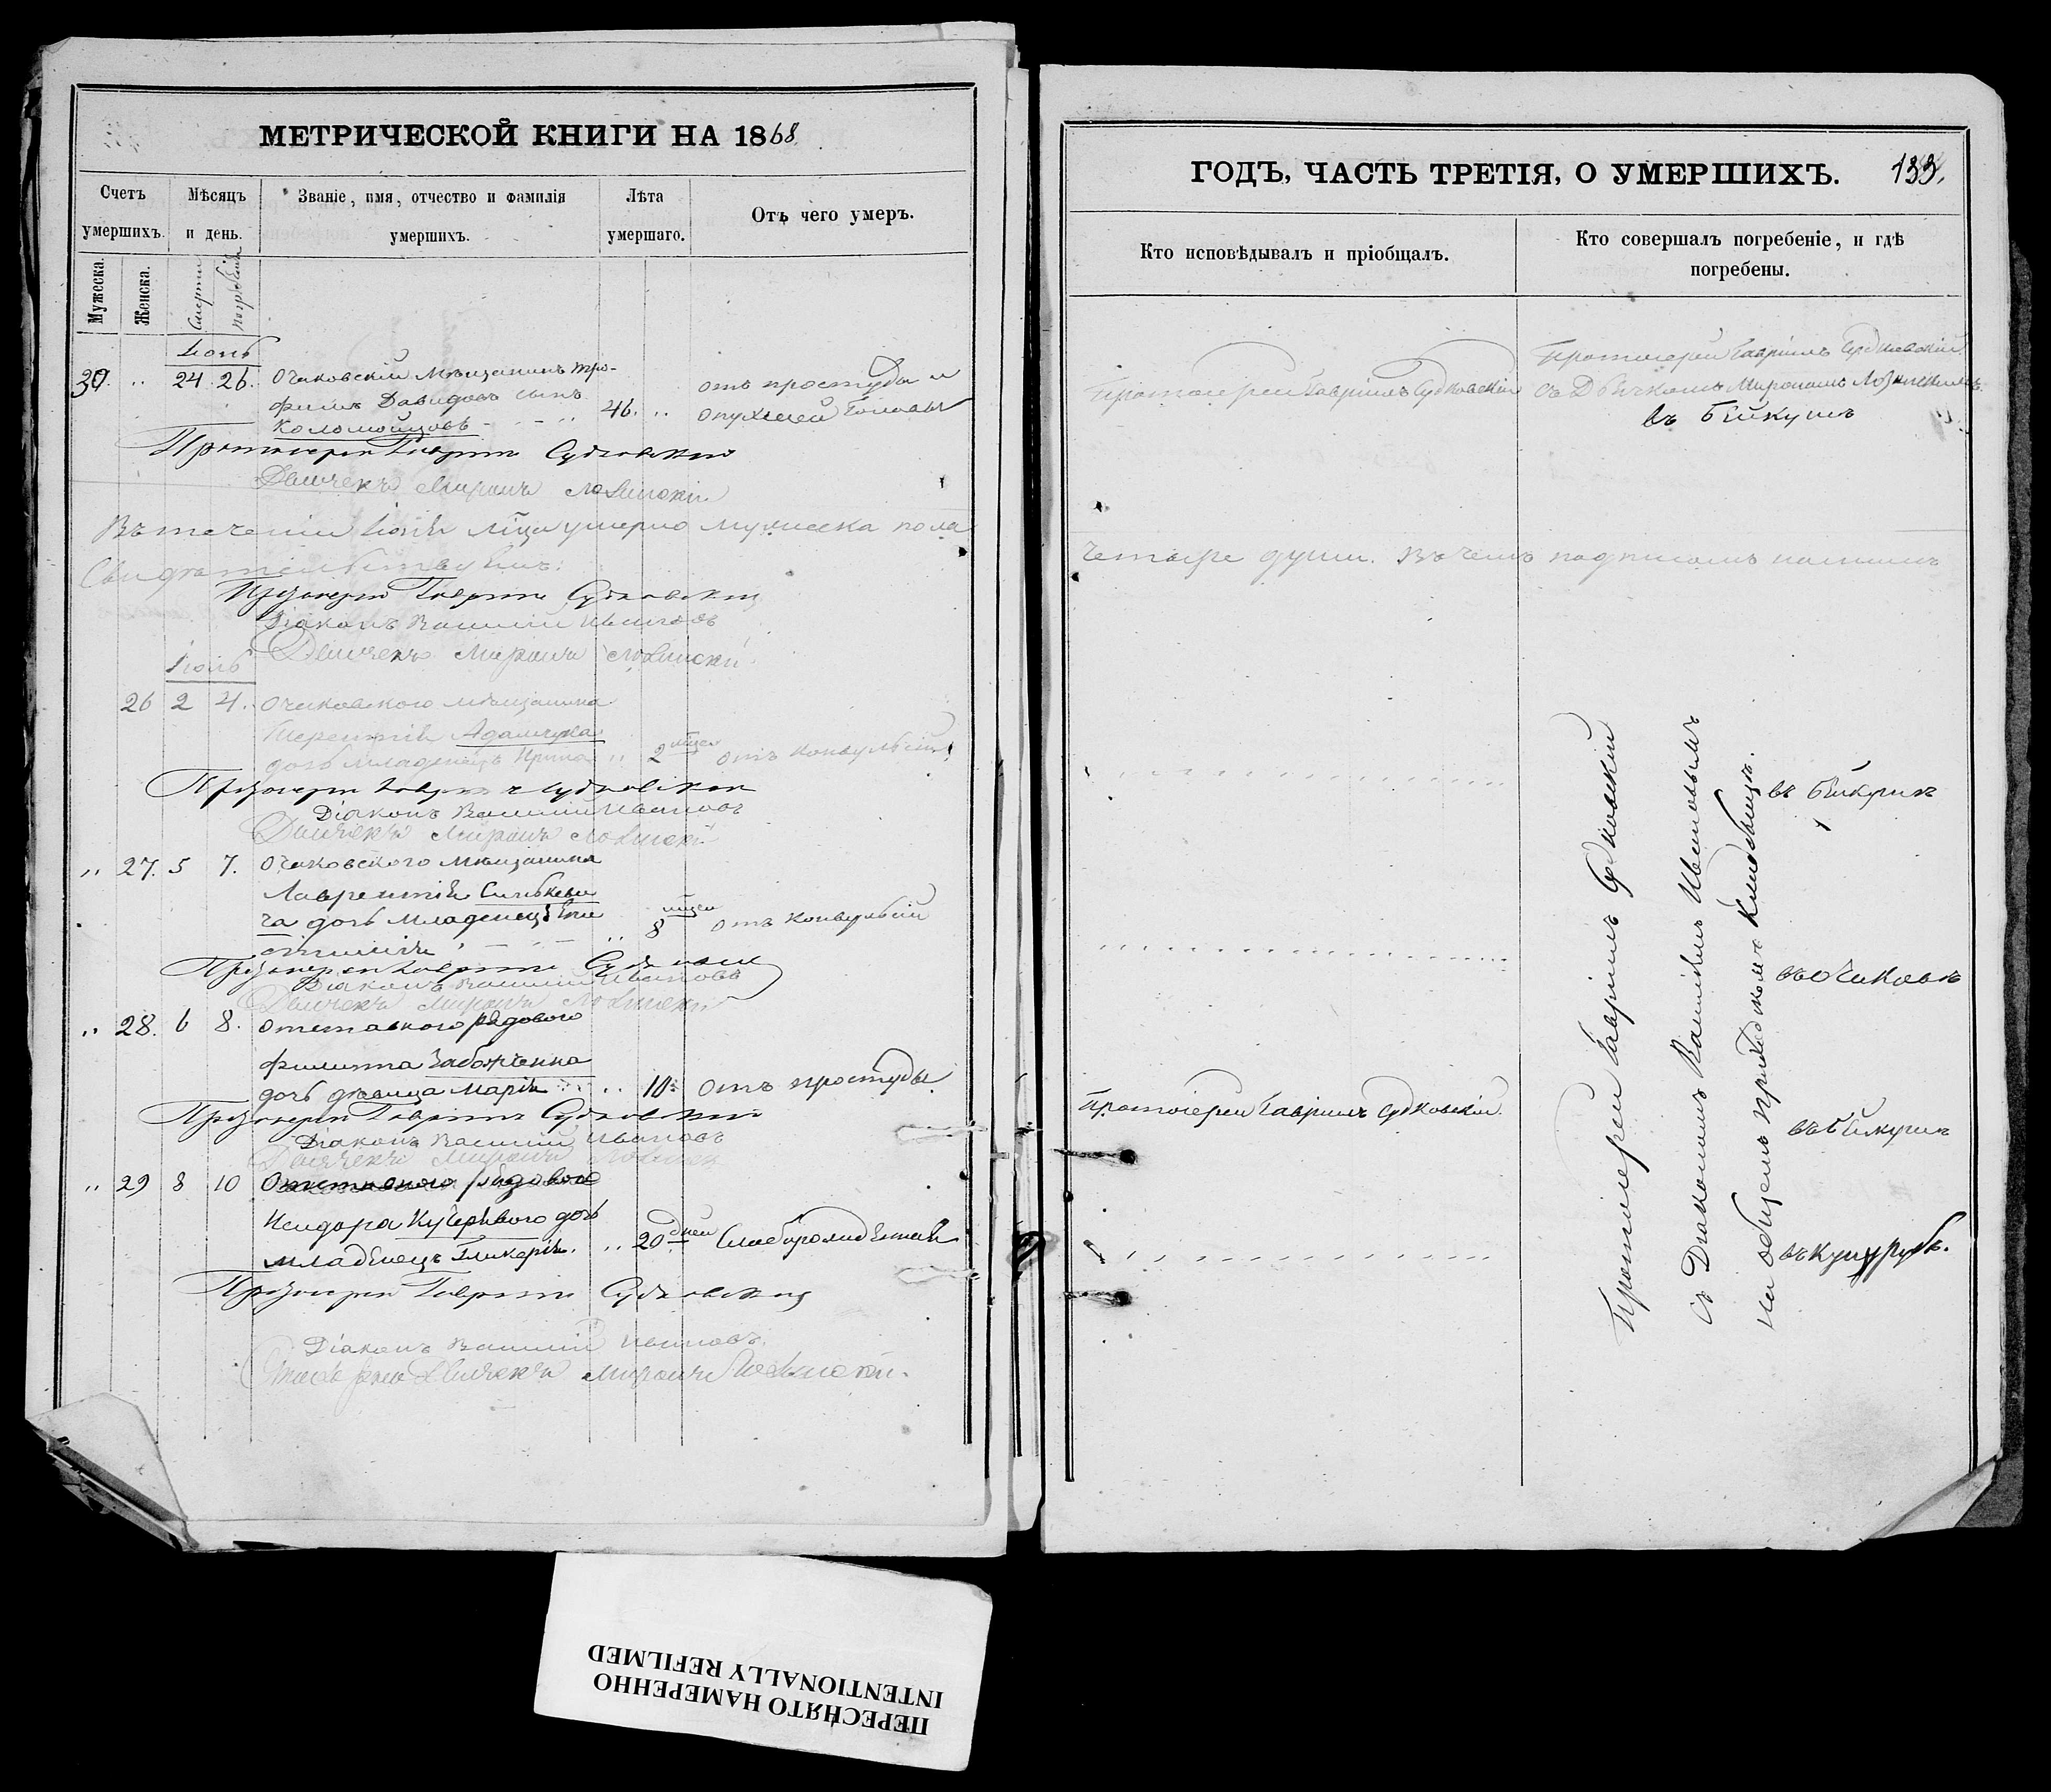 МЕТРИЧЕСКОЙ КНИГИ НА 1868
Счетъ умершихъ.
Мѣсяцъ и день.
Званіе, имя, отчество и фамилія умершихъ.
Лѣта умершаго.
Отъ чего умеръ.
Мужеска.
Женска.
Смерти
погребенія
Іюнь
30. „ 24. 26. Очаковскій Мѣщанинъ Тро-
фимъ Давидовъ сынъ 46. „ отъ простуды и
Коломойцовъ опухшей головы
Протоіерей Гавріилъ Судковскій
Дьячекъ Миронъ Лозинскій
Въ теченіи Іюня мца умерло мужеска пола
Свидѣтельствуемъ:
Протоіерей Гавріилъ Судковскій
Діаконъ Василій Ивановъ
Дьячекъ Миронъ Лозинскій
Іюль
26 2 4. Очаковскаго мѣщанина
Терентія Адамчука
дочь младенецъ Ирина „ 2 мцa отъ конвульсіи
Протоіерей Гавріилъ Судковскій
Діаконъ Василій Ивановъ
Дьячекъ Миронъ Лозинскій
„ 27. 5 7. Очаковского Мѣщанина
Лаврентія Синькеви
ча дочь младенецъ 8 мцеи отъ конвульсій
Протоіерей Гавріилъ
Діаконъ Василій Ивановъ
Дьячекъ Миронъ Лозинскій
„ 28. 6 8. отставного рядового
Филиппа
дочь дѣвица Марія „ 10. отъ простуды
Протоіерей Гавріилъ Судковскій
Діаконъ Василій Ивановъ
Дьячекъ Миронъ
„ 29 8 10 Отставного рядового
Исидора Кучеряваго дочь
младенецъ Гликерія. „ 20 дней
Протоіерей Гавріилъ Судковскій
Діаконъ Василій Ивановъ
Дьячекъ Миронъ Лозинскій.
ГОДЪ, ЧАСТЬ ТРЕТІЯ, О УМЕРШИХЪ. 133.
Кто исповѣдывалъ и пріобщалъ.
Кто совершалъ погребеніе, и гдѣ погребены.
Протоіерей Гавріилъ Судковскій
Протоіерей Гавріилъ Судковскій
съ Дьячкомъ Мирономъ Лозинскимъ
въ Бейкушѣ
четыре души. Въ чемъ подписомъ нашимъ
Протоіерей Гавріилъ Судковскій
съ Діакономъ Василіемъ Ивановымъ
на общемъ приходскомъ кладбищѣ.
въ Бейкушѣ
въ Очаковѣ
Протоіерей Гавріилъ Судковскій.
въ Бейкушѣ
въ Куцурубѣ.
ПЕРЕСНЯТО НАМЕРЕННО
INTENTIONALLY REFILMED